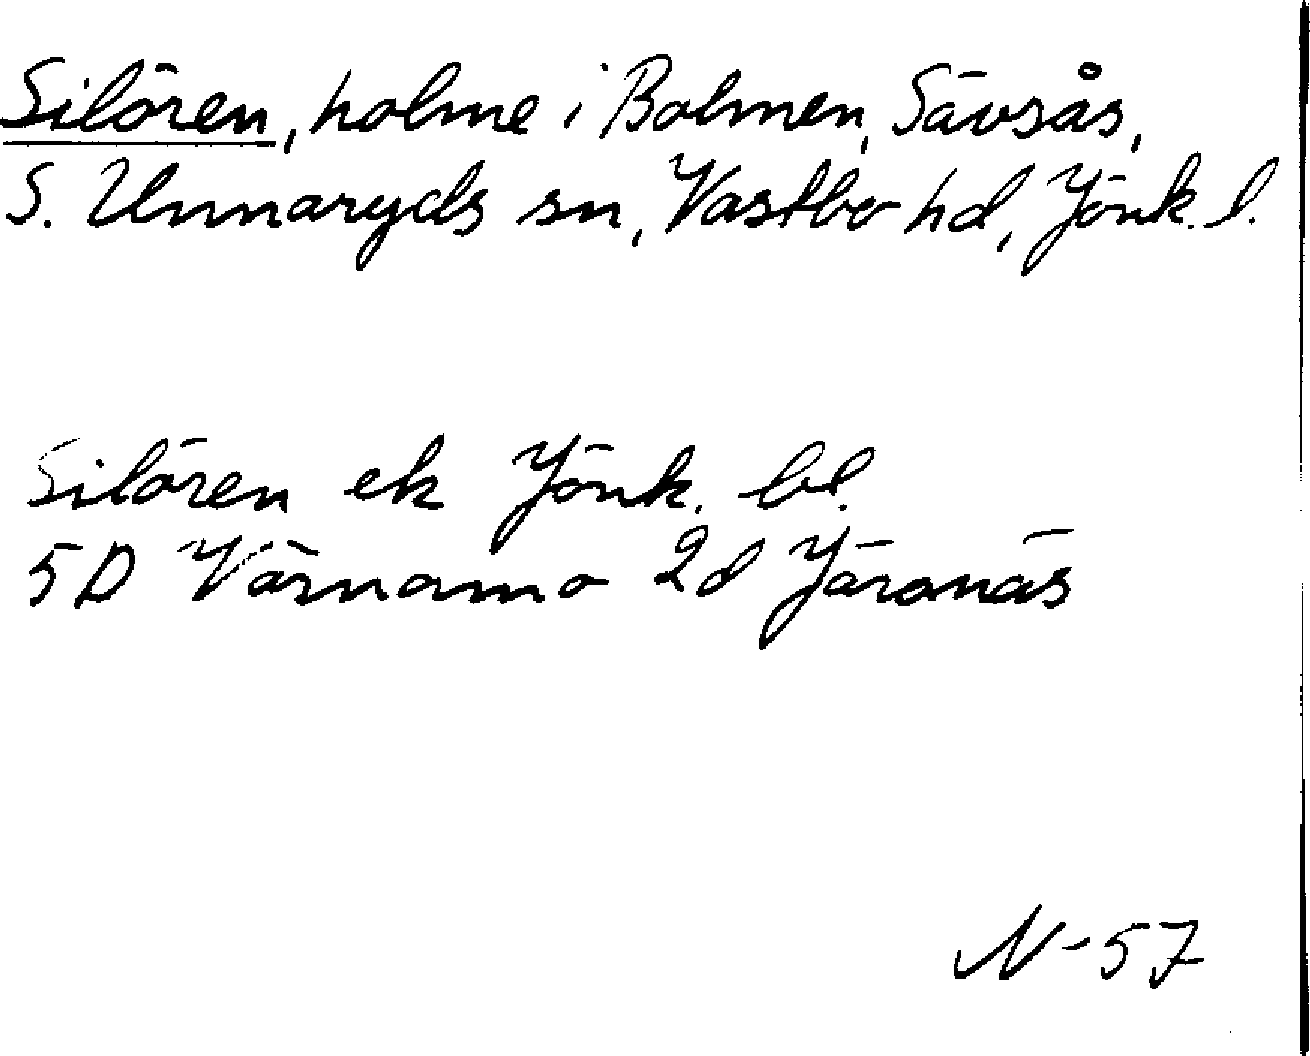 Silören, holme i Bolmen, Sävsås,
S. Unnaryds sn, Västbo hd, Jönk. l.
Silören ek Jönk. bl.
5D Värnamo 2d Järanäs
N-57